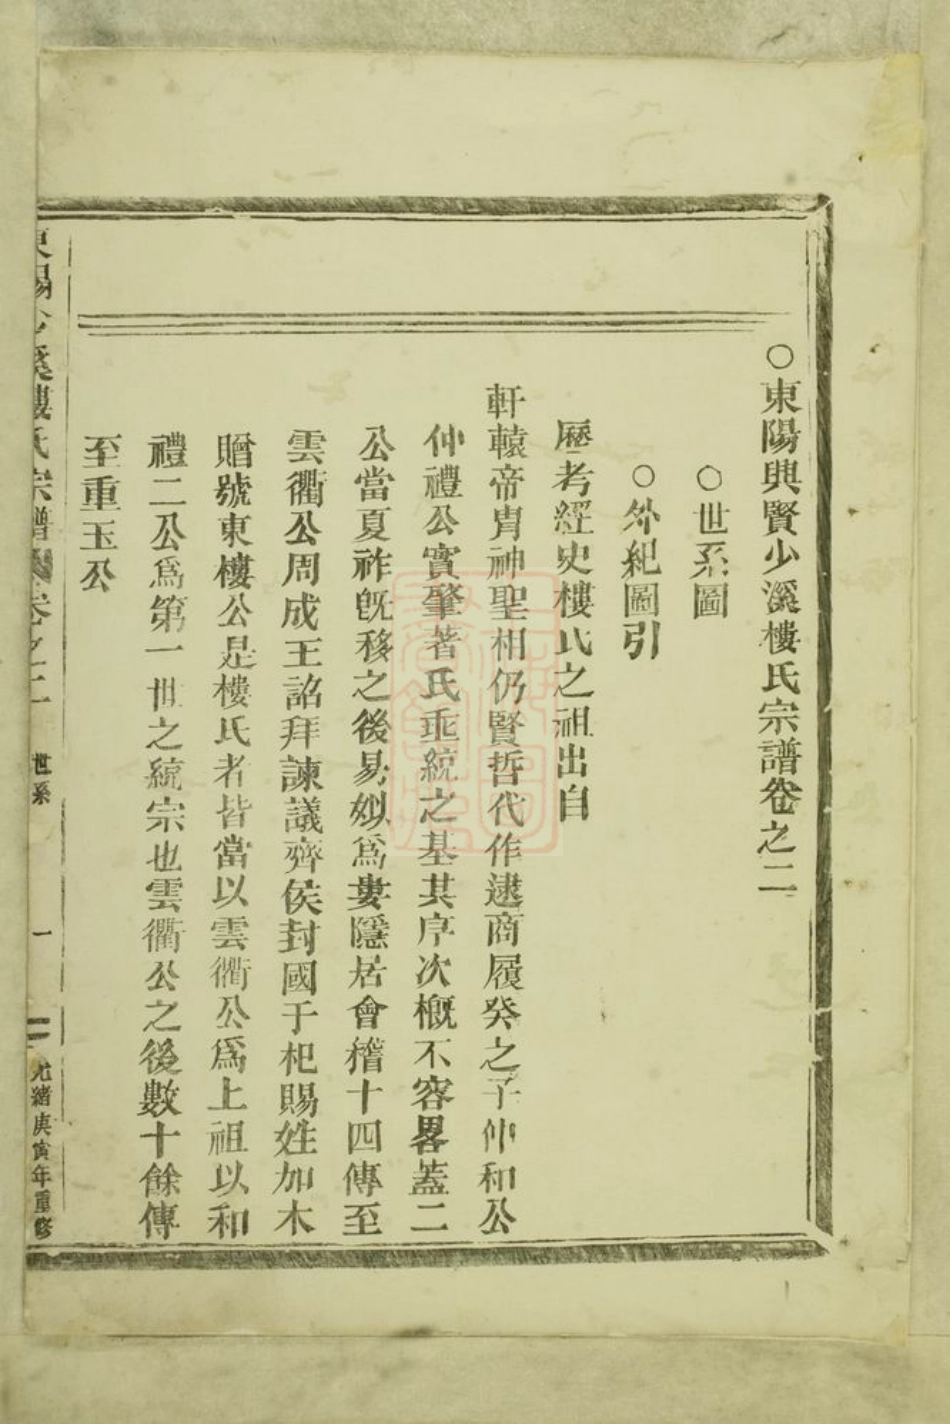 ○東陽興賢少溪樓氏宗譜卷之二
○世系圖
○外紀圖引
歷考經史樓氏之祖出自
軒轅帝胄神聖相仍賢哲代作逮商履癸之子仲和公
仲禮公實肇著氏垂統之基其序次槪不容畧蓋二
公當夏祚旣移之後易姒爲婁隱居會稽十四傳至
雲衢公周成王詔拜諫議齊侯封國于杞賜姓加木
贈號東樓公是樓氏者皆當以雲衢公爲上祖以和
禮二公爲第一世之統宗也雲衢公之後數十餘傳
至重玉公
東陽少溪樓氏宗譜 卷之二 世系 一 光緒庚寅年重修